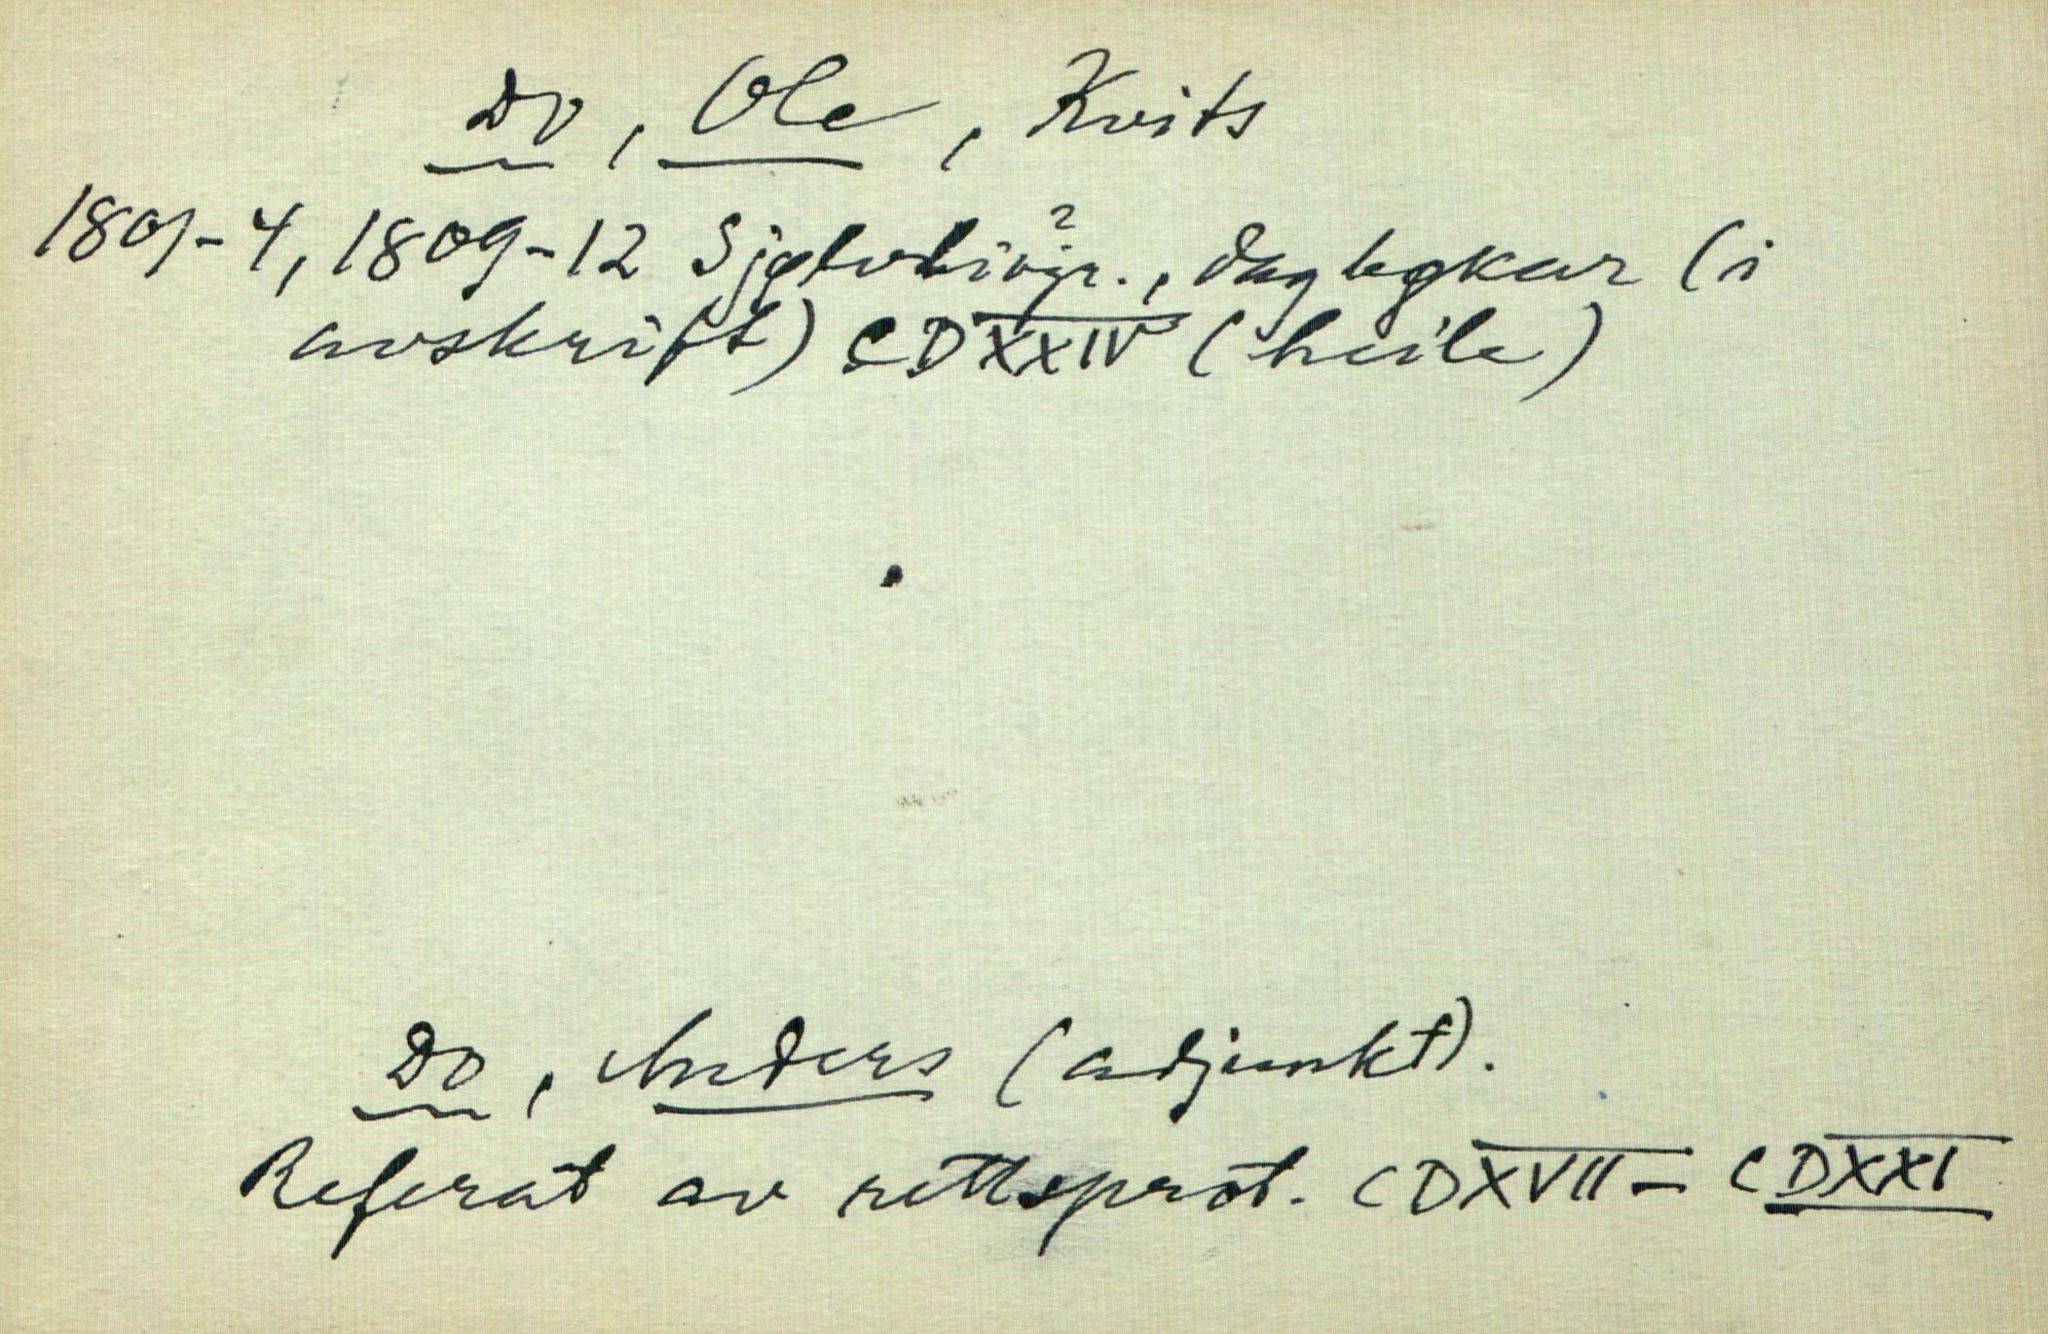 Do, Ole, Kvits
1801-4, 1809-12 Sjølvbiogr., dagbøkar (i
avskrift) CDXXIV (heile)
Do, Anders (adjunkt).
Referat av rettsprot. CDXVII - CDXXI